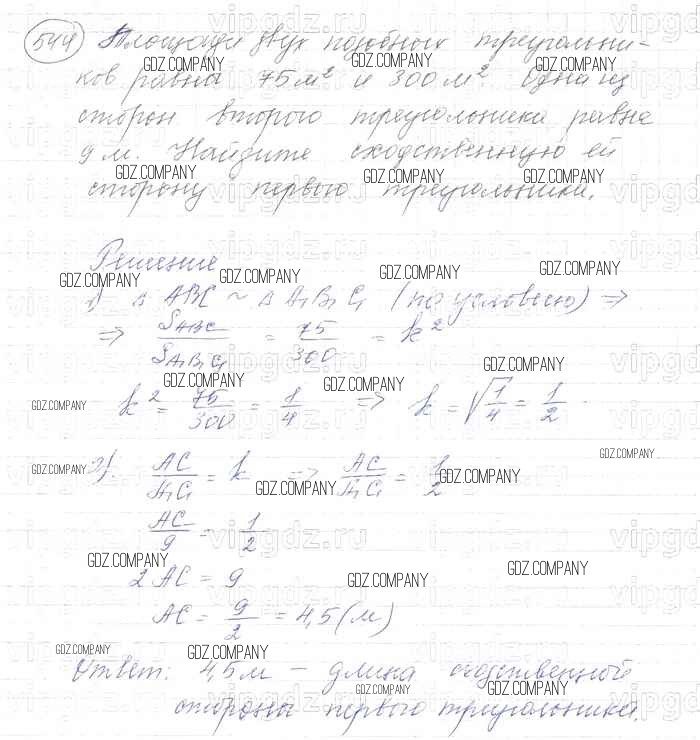 544 Площади двух подобных треугольни-
ков равны 75 м² и 300 м². Одна из
сторон второго треугольника равна
9 м. Найдите сходственную ей
сторону первого треугольника.
Решение
1) Δ ABC ~ Δ A₁B₁C₁ (по условию) ⇒
⇒ S_ABC / S_A₁B₁C₁ = 75/300 = k²
k² = 75/300 = 1/4 ⇒ k = √1/4 = 1/2
2) AC/A₁C₁ = k ⇒ AC/A₁C₁ = 1/2
AC/9 = 1/2
2 AC = 9
AC = 9/2 = 4,5 (м)
Ответ: 4,5 м – длина сходственной
стороны первого треугольника.
GDZ.COMPANY
vipgdz.ru